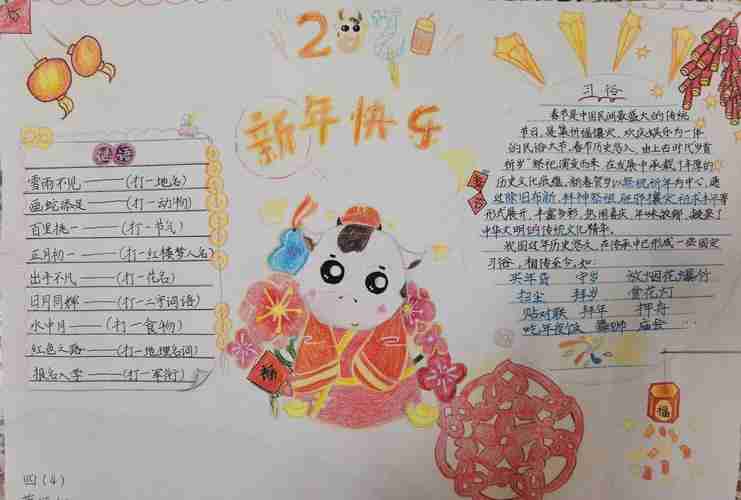 20
新年快乐
谜语
雪雨不见——(打一地名)
画蛇添足——(打一动物)
百里挑一——(打一节气)
正月初一——(打一红楼梦人名)
出手不凡——(打一花名)
日月同辉——(打一二字词语)
水中月——(打一食物)
红色之路——(打一地理名词)
报名入学——(打一军衔)
四(4)
福
习俗
春节是中国民间最盛大的传统
节日,是集祈福攘灾、欢庆娱乐为一体
的民俗大节。春节历史悠久,由上古时代岁首
祈岁祭祀演变而来,在发展中承载了丰厚的
历史文化底蕴。新春贺岁以祭祝祈年为中心,通
过除旧布新、拜神祭祖、驱邪攘灾
形式展开,丰富多彩,热闹喜庆,年味浓郁,凝聚了
中华文明的传统文化精华。
我国过年历史悠久,在传承中已形成一些固定
习俗,相传至今,如:
买年货 守岁 放烟花爆竹
扫尘 拜岁 赏花灯
贴对联 拜年 押舟
吃年夜饭 舞狮 庙会
福